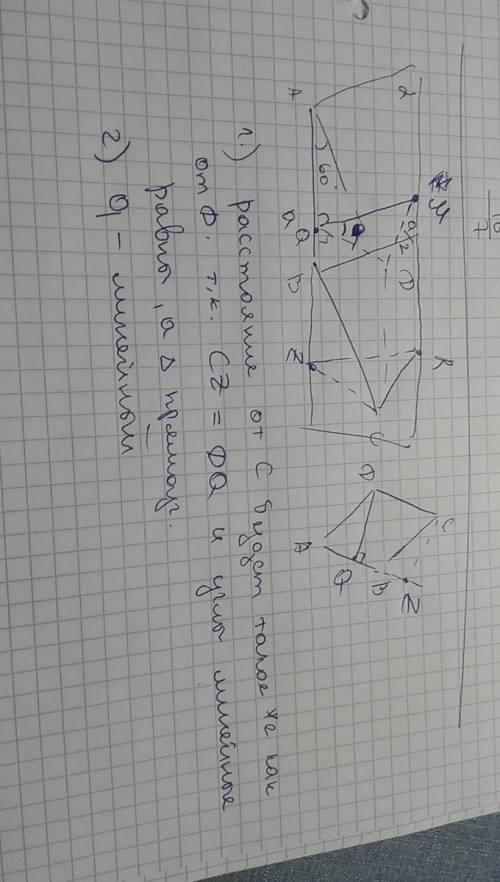 α
M
a/2
D
K
A
60°
a
Q
B
Z
C
D
C
A
Q
B
Z
1.) расстояние от C будет такое же как
от D. т.к. CZ = DQ и углы линейные
равны, а Δ прямоуг.
2) φ - линейный